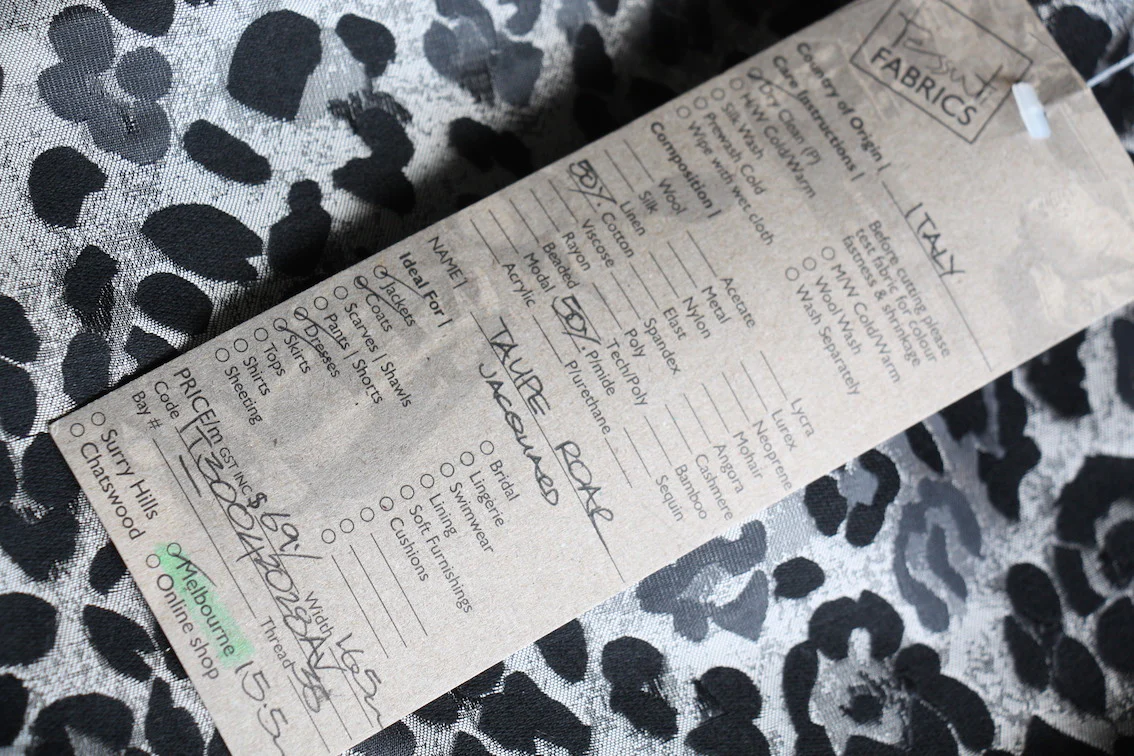 Tessuti
FABRICS
Country of Origin | ITALY
Care Instructions |
Dry Clean (P)
H/W Cold/Warm
Silk Wash
Prewash Cold
Wipe with wet cloth
Before cutting please
test fabric for colour
fastness & shrinkage
M/W Cold/Warm
Wool Wash
Wash Separately
Composition |
Wool
Silk
Linen
50% Cotton
Viscose
Rayon
Beaded
Modal
Acrylic
Acetate
Metal
Nylon
Elast
Spandex
Tech/Poly
Poly
50% P/mide
Plurethane
Lycra
Lurex
Neoprene
Mohair
Angora
Cashmere
Bamboo
Sequin
NAME | TAUPE ROAR
JACQUARD
Ideal For |
Jackets
Coats
Scarves | Shawls
Pants | Shorts
Dresses
Skirts
Tops
Shirts
Sheeting
Bridal
Lingerie
Swimwear
Lining
Soft Furnishings
Cushions
PRICE/m GST INC $ 69./ Width 1.65m
Code
Bay # Thread
Surry Hills
Chatswood
Melbourne 15.5m
Online shop